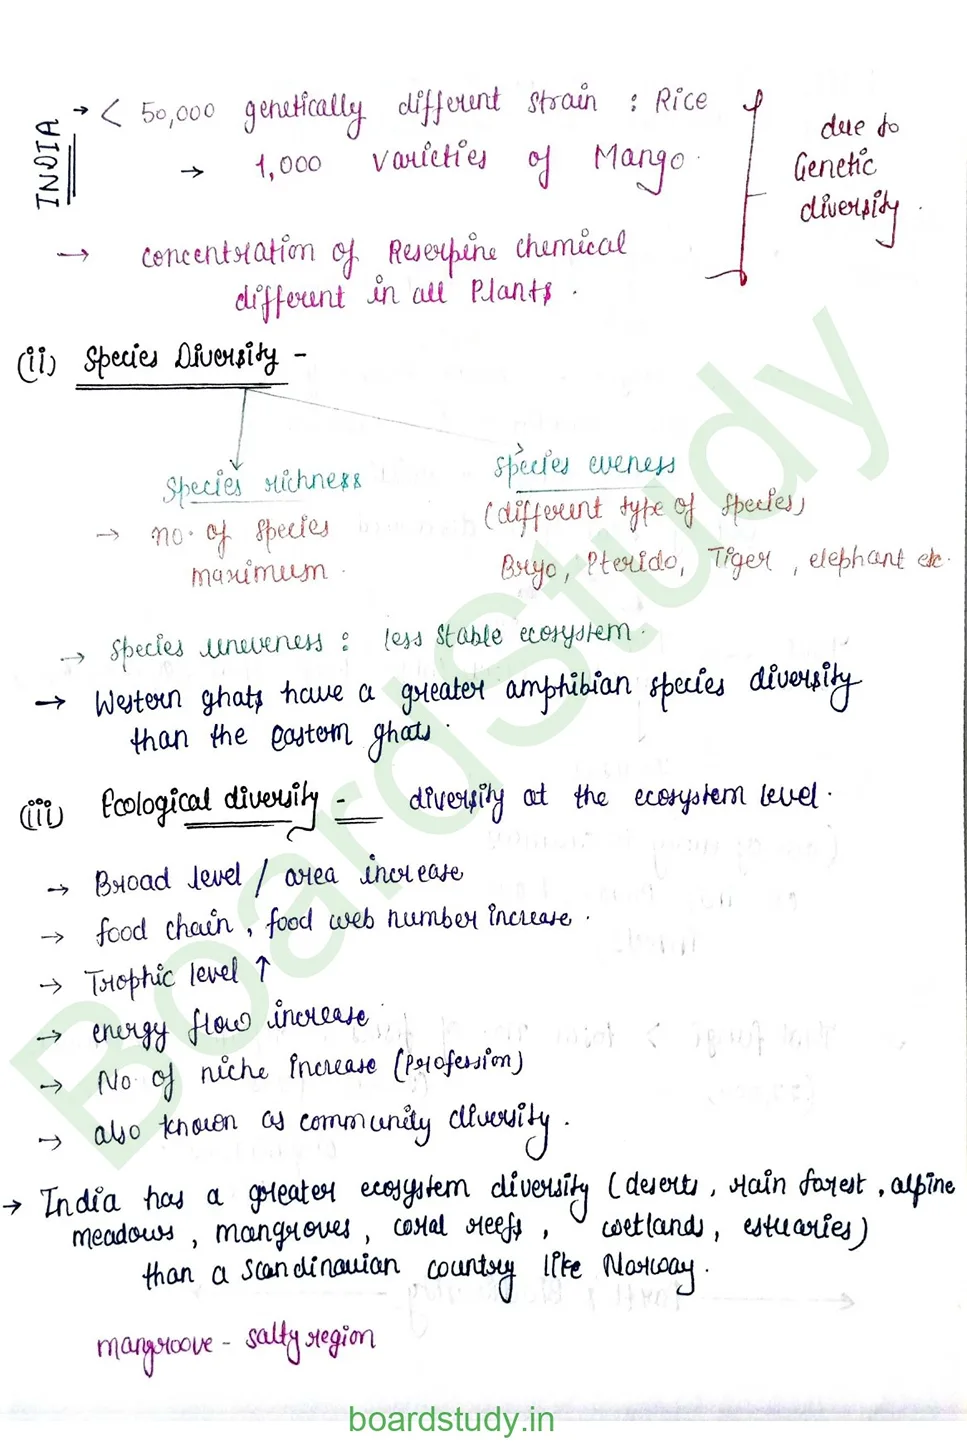 INDIA
→ < 50,000 genetically different strain : Rice
→ 1,000 varieties of Mango.
due to
Genetic
diversity.
→ concentration of Reserpine chemical
different in all Plants.
(ii) Species Diversity -
Species richness
→ no. of species
maximum.
Species eveness
(different type of species)
Bryo, Pterido, Tiger, elephant etc.
→ Species uneveness : less stable ecosystem.
→ Western ghats have a greater amphibian species diversity
than the eastern ghats.
(iii) Ecological diversity - diversity at the ecosystem level.
→ Broad level / area increase
→ food chain, food web number increase.
→ Trophic level ↑
→ energy flow increase
→ No. of niche increase (profession)
→ also known as community diversity.
→ India has a greater ecosystem diversity (deserts, rain forest, alpine
meadows, mangroves, coral reefs, wetlands, estuaries)
than a scandinavian country like Norway.
mangroove - salty region
BoardStudy
boardstudy.in